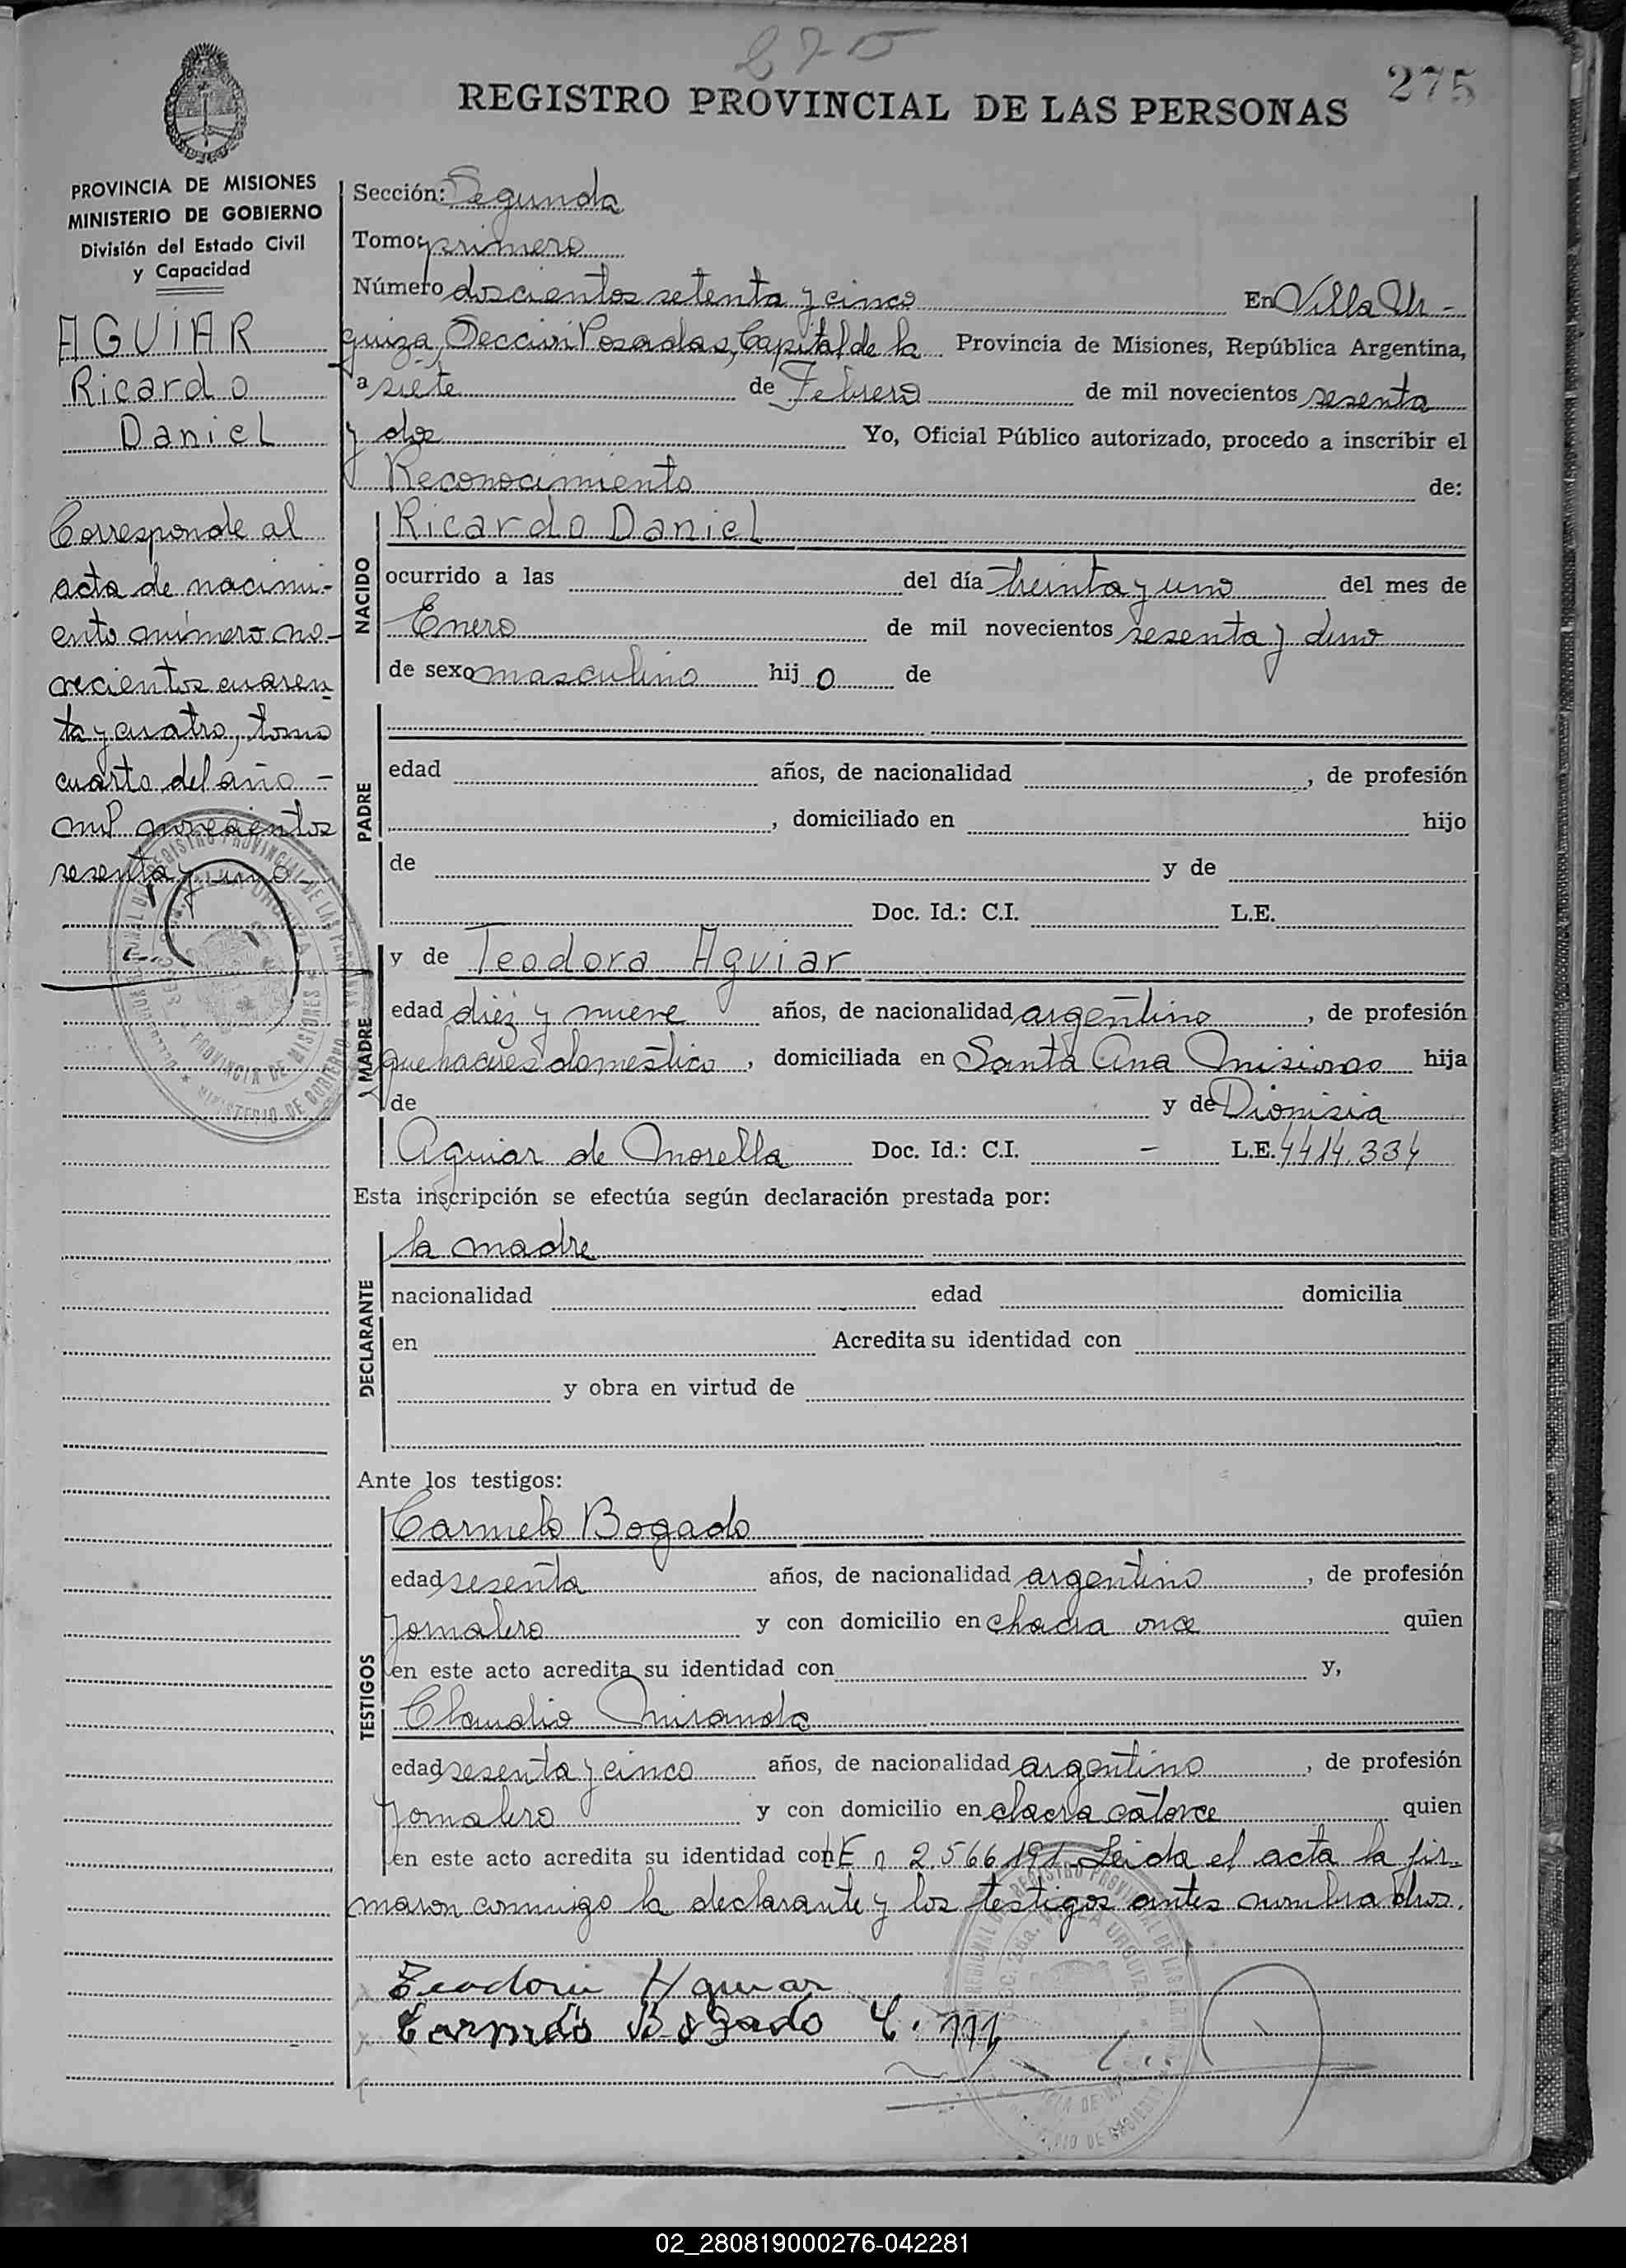 275
275
REGISTRO PROVINCIAL DE LAS PERSONAS
PROVINCIA DE MISIONES
MINISTERIO DE GOBIERNO
División del Estado Civil
y Capacidad
AGUIAR
Ricardo
Daniel
Corresponde al
acta de nacimi-
ento número no-
vecientos cuaren
ta y cuatro, tomo
cuarto del año -
mil novecientos
sesenta y uno
Sección: Segunda
Tomo: primero
Número doscientos setenta y cinco En Villa Ur-
quiza, Sección Posadas, Capital de la Provincia de Misiones, República Argentina,
a siete de Febrero de mil novecientos sesenta
y dos Yo, Oficial Público autorizado, procedo a inscribir el
Reconocimiento de:
NACIDO
Ricardo Daniel
ocurrido a las del día treinta y uno del mes de
Enero de mil novecientos sesenta y
de sexo masculino hij o de
PADRE
edad años, de nacionalidad , de profesión
, domiciliado en hijo
de y de
Doc. Id.: C.I. L.E.
MADRE
y de Teodora Aguiar
edad diez y nueve años, de nacionalidad argentino , de profesión
quehaceres domestico , domiciliada en Santa Ana Misiones hija
de y de Dionisia
Aguiar de Morella Doc. Id.: C.I. - L.E. 4414.334
Esta inscripción se efectúa según declaración prestada por:
DECLARANTE
la madre
nacionalidad edad domicilia
en Acredita su identidad con
y obra en virtud de
Ante los testigos:
TESTIGOS
Carmelo Bogado
edad sesenta años, de nacionalidad argentino , de profesión
Jornalero y con domicilio en chacra once quien
en este acto acredita su identidad con y,
Claudio Miranda
edad sesenta y cinco años, de nacionalidad argentino , de profesión
Jornalero y con domicilio en chacra catorce quien
en este acto acredita su identidad con LE n 2.566.191 - Leida el acta la fir-
maron conmigo la declarante y los testigos antes nombrados.
Teodora Aguiar
Carmelo Bogado C. M
02_280819000276-042281